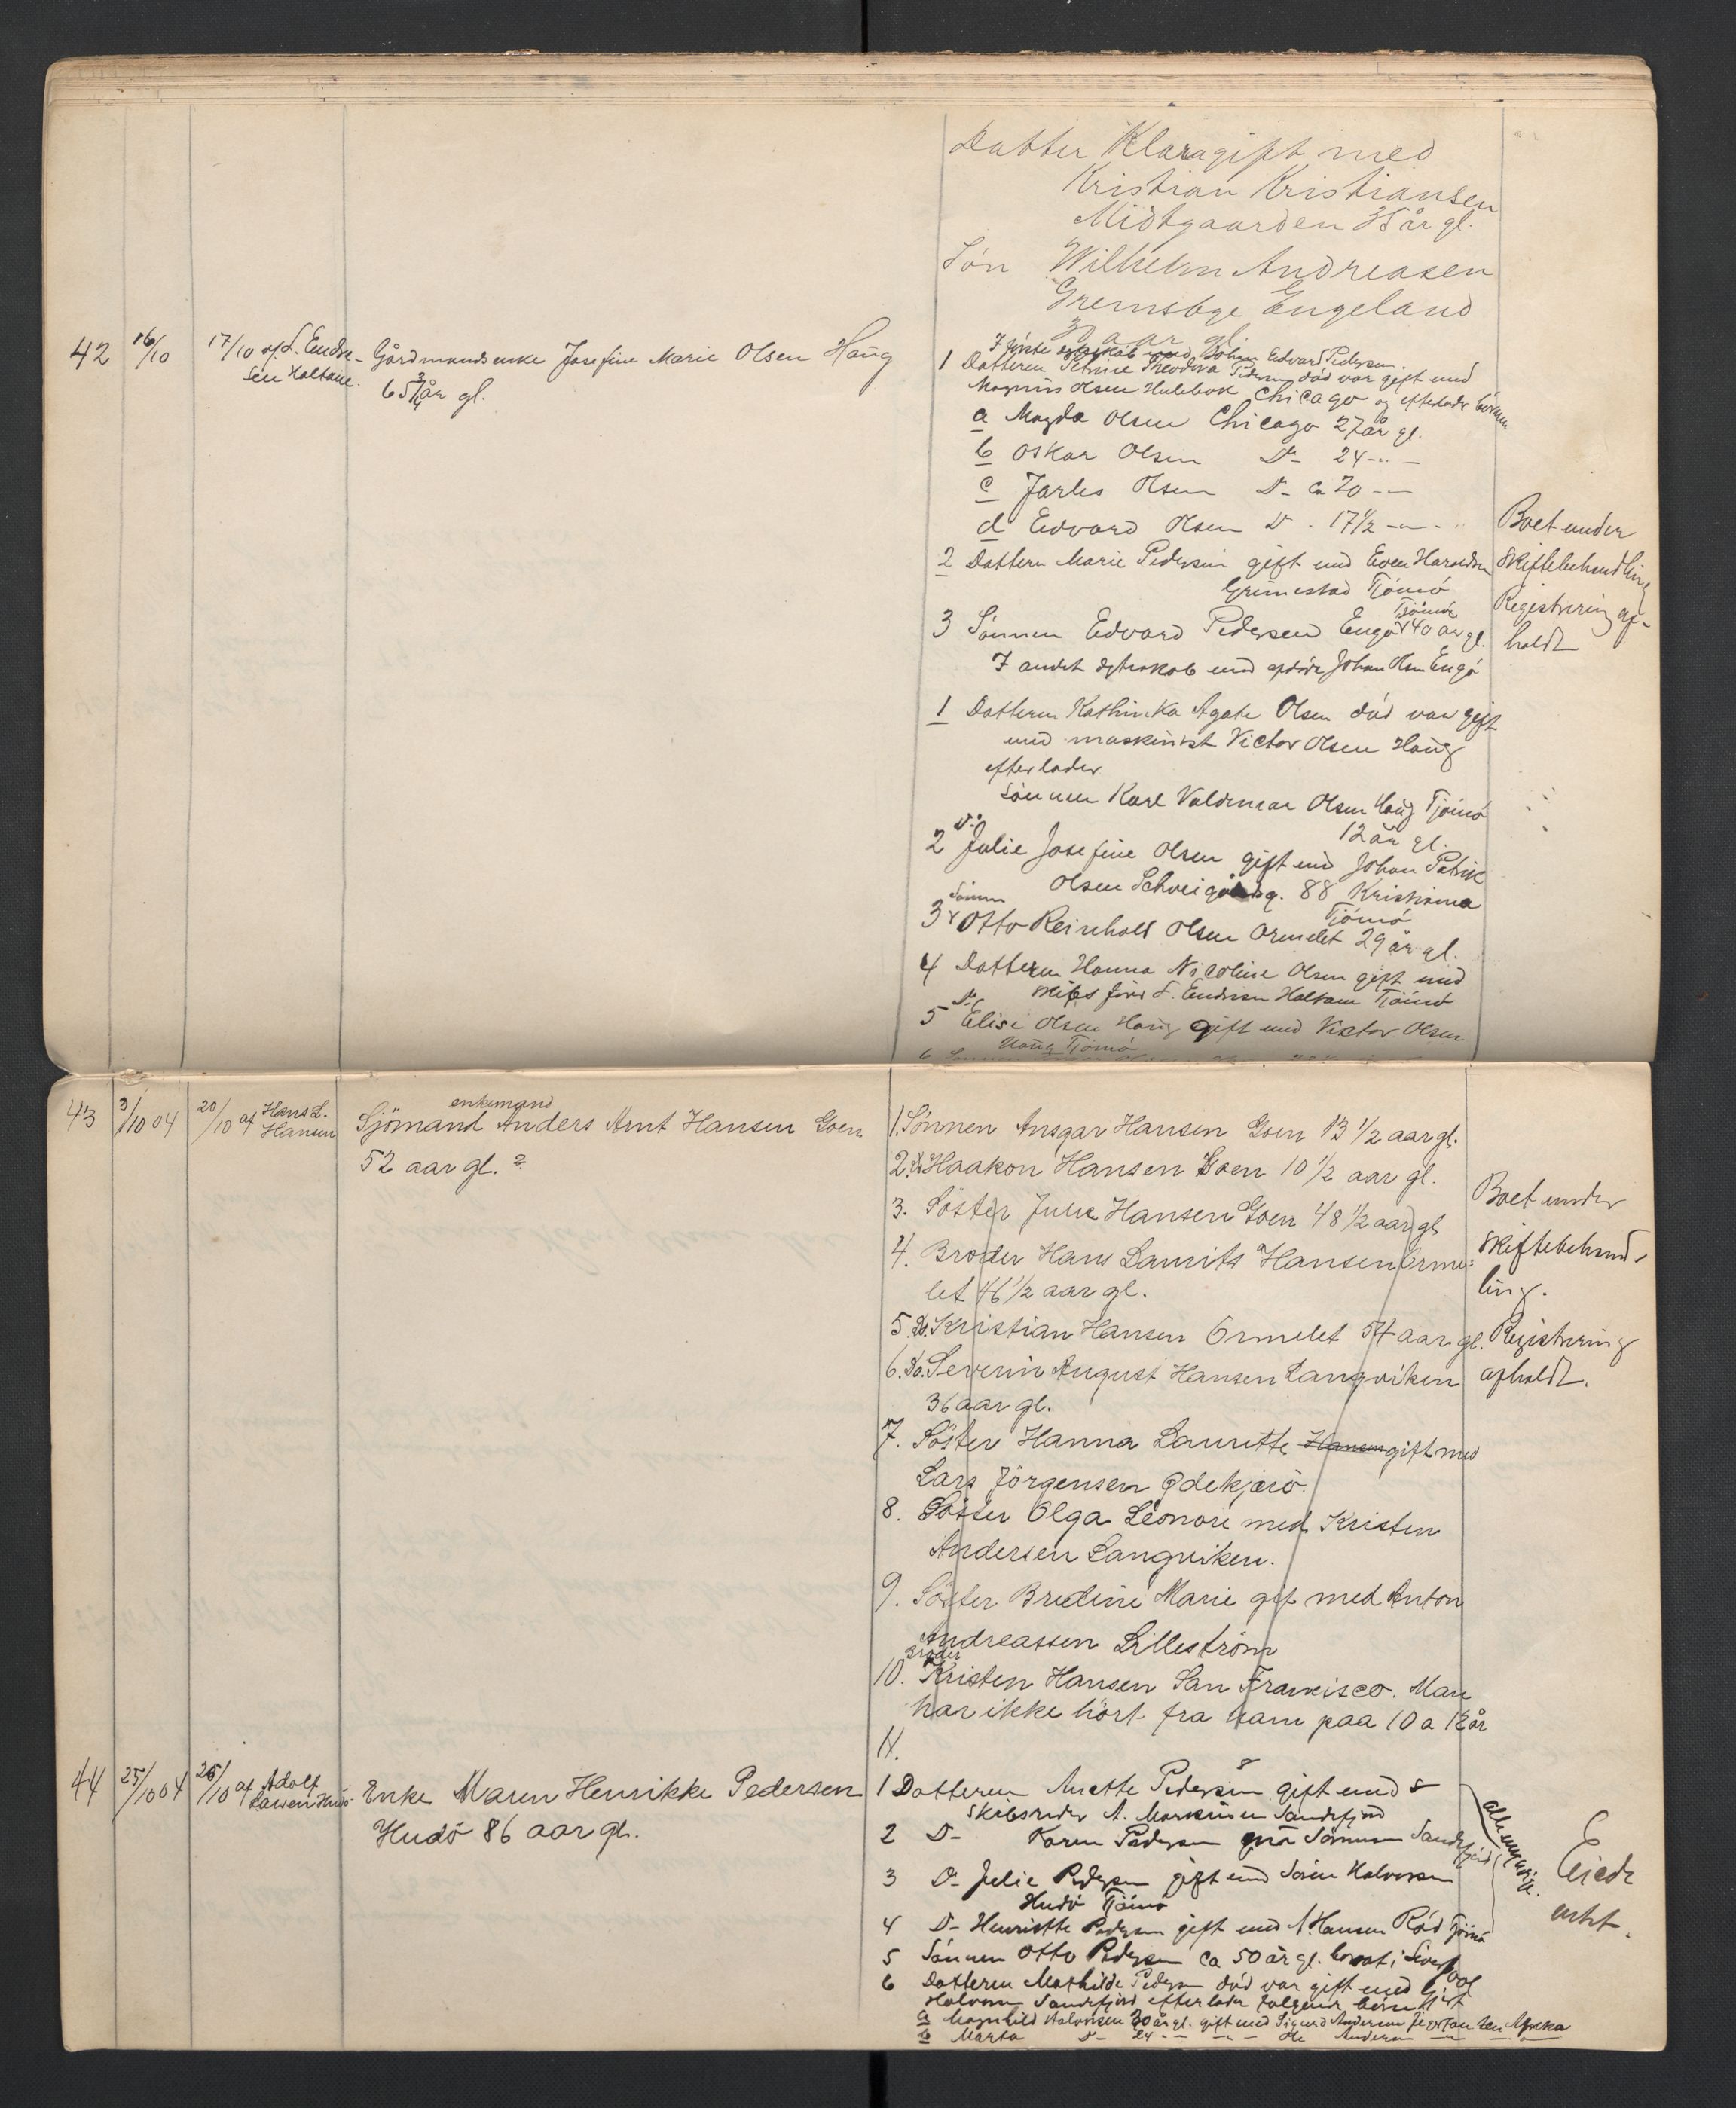 Datter Klara gift med
Kristian Kristiansen
Midtgaarden år gl.
Sön Wilhelm Andreasen
Gremsbye Engeland
aar gl.
42 16/10 17/10 af L. Endre-
sen Haltane.
Gårdmandsenke Josefine Marie Olsen Haug
65 3/4 år gl.
I förste egteskab med Johan Edvard Pedersen.
1 Datteren Petrine Theodora Pedersen död var gift med
Magnus Olsen Hulebak Chicago og efterlader börnene
a Magda Olsen Chicago 27 år gl.
b Oskar Olsen D- 24 -"-
c Jarles Olsen D- ca 20 -"-
d Edvard Olsen D- 17 1/2 -"-
2 Datteren Marie Pedersen gift med Even Haraldsen
Grimestad Tjömö
3 Sönnen Edvard Pedersen Engö Tjömö 40 år gl.
I andet egteskab med afdöde Johan Olsen Engö
1 Datteren Kathinka Agate Olsen död var gift
med maskinist Victor Olsen Haug
efterlader
Sönnen Karl Valdemar Olsen Haug Tjömö
12 år gl.
2 D- Julie Josefine Olsen gift med Johan Patrik
Olsen Schveigårdsg. 88 Kristiania
3 Sönnen Otto Reinholt Olsen Ormelet Tjömö 29 år gl.
4 Datteren Hanna Nicoline Olsen gift med
skibsförer L. Endresen Haltane Tjömö
5 D- Elise Olsen Haug gift med Victor Olsen
Haug Tjömö
Boet under
skiftebehandling
Registrering af-
holdt
43 3/10 04 20/10 af Hans L.
Hansen
Sjömand enkemand Anders Arnt Hansen Goen
52 aar gl.
1. Sönnen Ansgar Hansen Goen 13 1/2 aar gl.
2. Do Haakon Hansen Goen 10 1/2 aar gl.
3. Söster Julie Hansen Goen 48 1/2 aar gl
4. Broder Hans Laurits Hansen Orme-
let 46 1/2 aar gl.
5. Do. Kristian Hansen Ormelet 54 aar gl.
6. Do. Severin August Hansen Langviken
36 aar gl.
7. Söster Hanna Laurette Hansen gift med
Lars Jörgensen Ødekjærö.
8. Söster Olga Leonore med Kristen
Andersen Langviken.
9. Söster Bredine Marie gift med Anton
Andreassen Lilleström
10. Broder Kristen Hansen San Francisco. Man
har ikke hört fra ham paa 10 a 12 år
11.
Boet under
skiftebehand-
ling.
Registrering
afholdt.
44 25/10 04 26/10 af Adolf
Larsen Hudö
Enke Maren Henrikke Pedersen
Hudö 86 aar gl.
1 Datteren Anette Pedersen gift med
Skibsreder A. Markussen Sandefjord
2 D- Karen Pedersen Sandefjord
3 D- Julie Pedersen gift med Sören Halvorsen
Hudö Tjömö
4 D- Henriette Pedersen gift med A. Hansen Röd Tjömö
5 Sönnen Otto Pedersen ca 50 år gl. bosat i Liverpool
6 Datteren Mathilde Pedersen död var gift med
Halvorsen Sandefjord efterlader fölgende börn
a Magnhild Halvorsen 30 år gl. gift med Sigurd Andersen Afrika
b Marta D- 24 -"- -"- Andersen -"-
alle myndige.